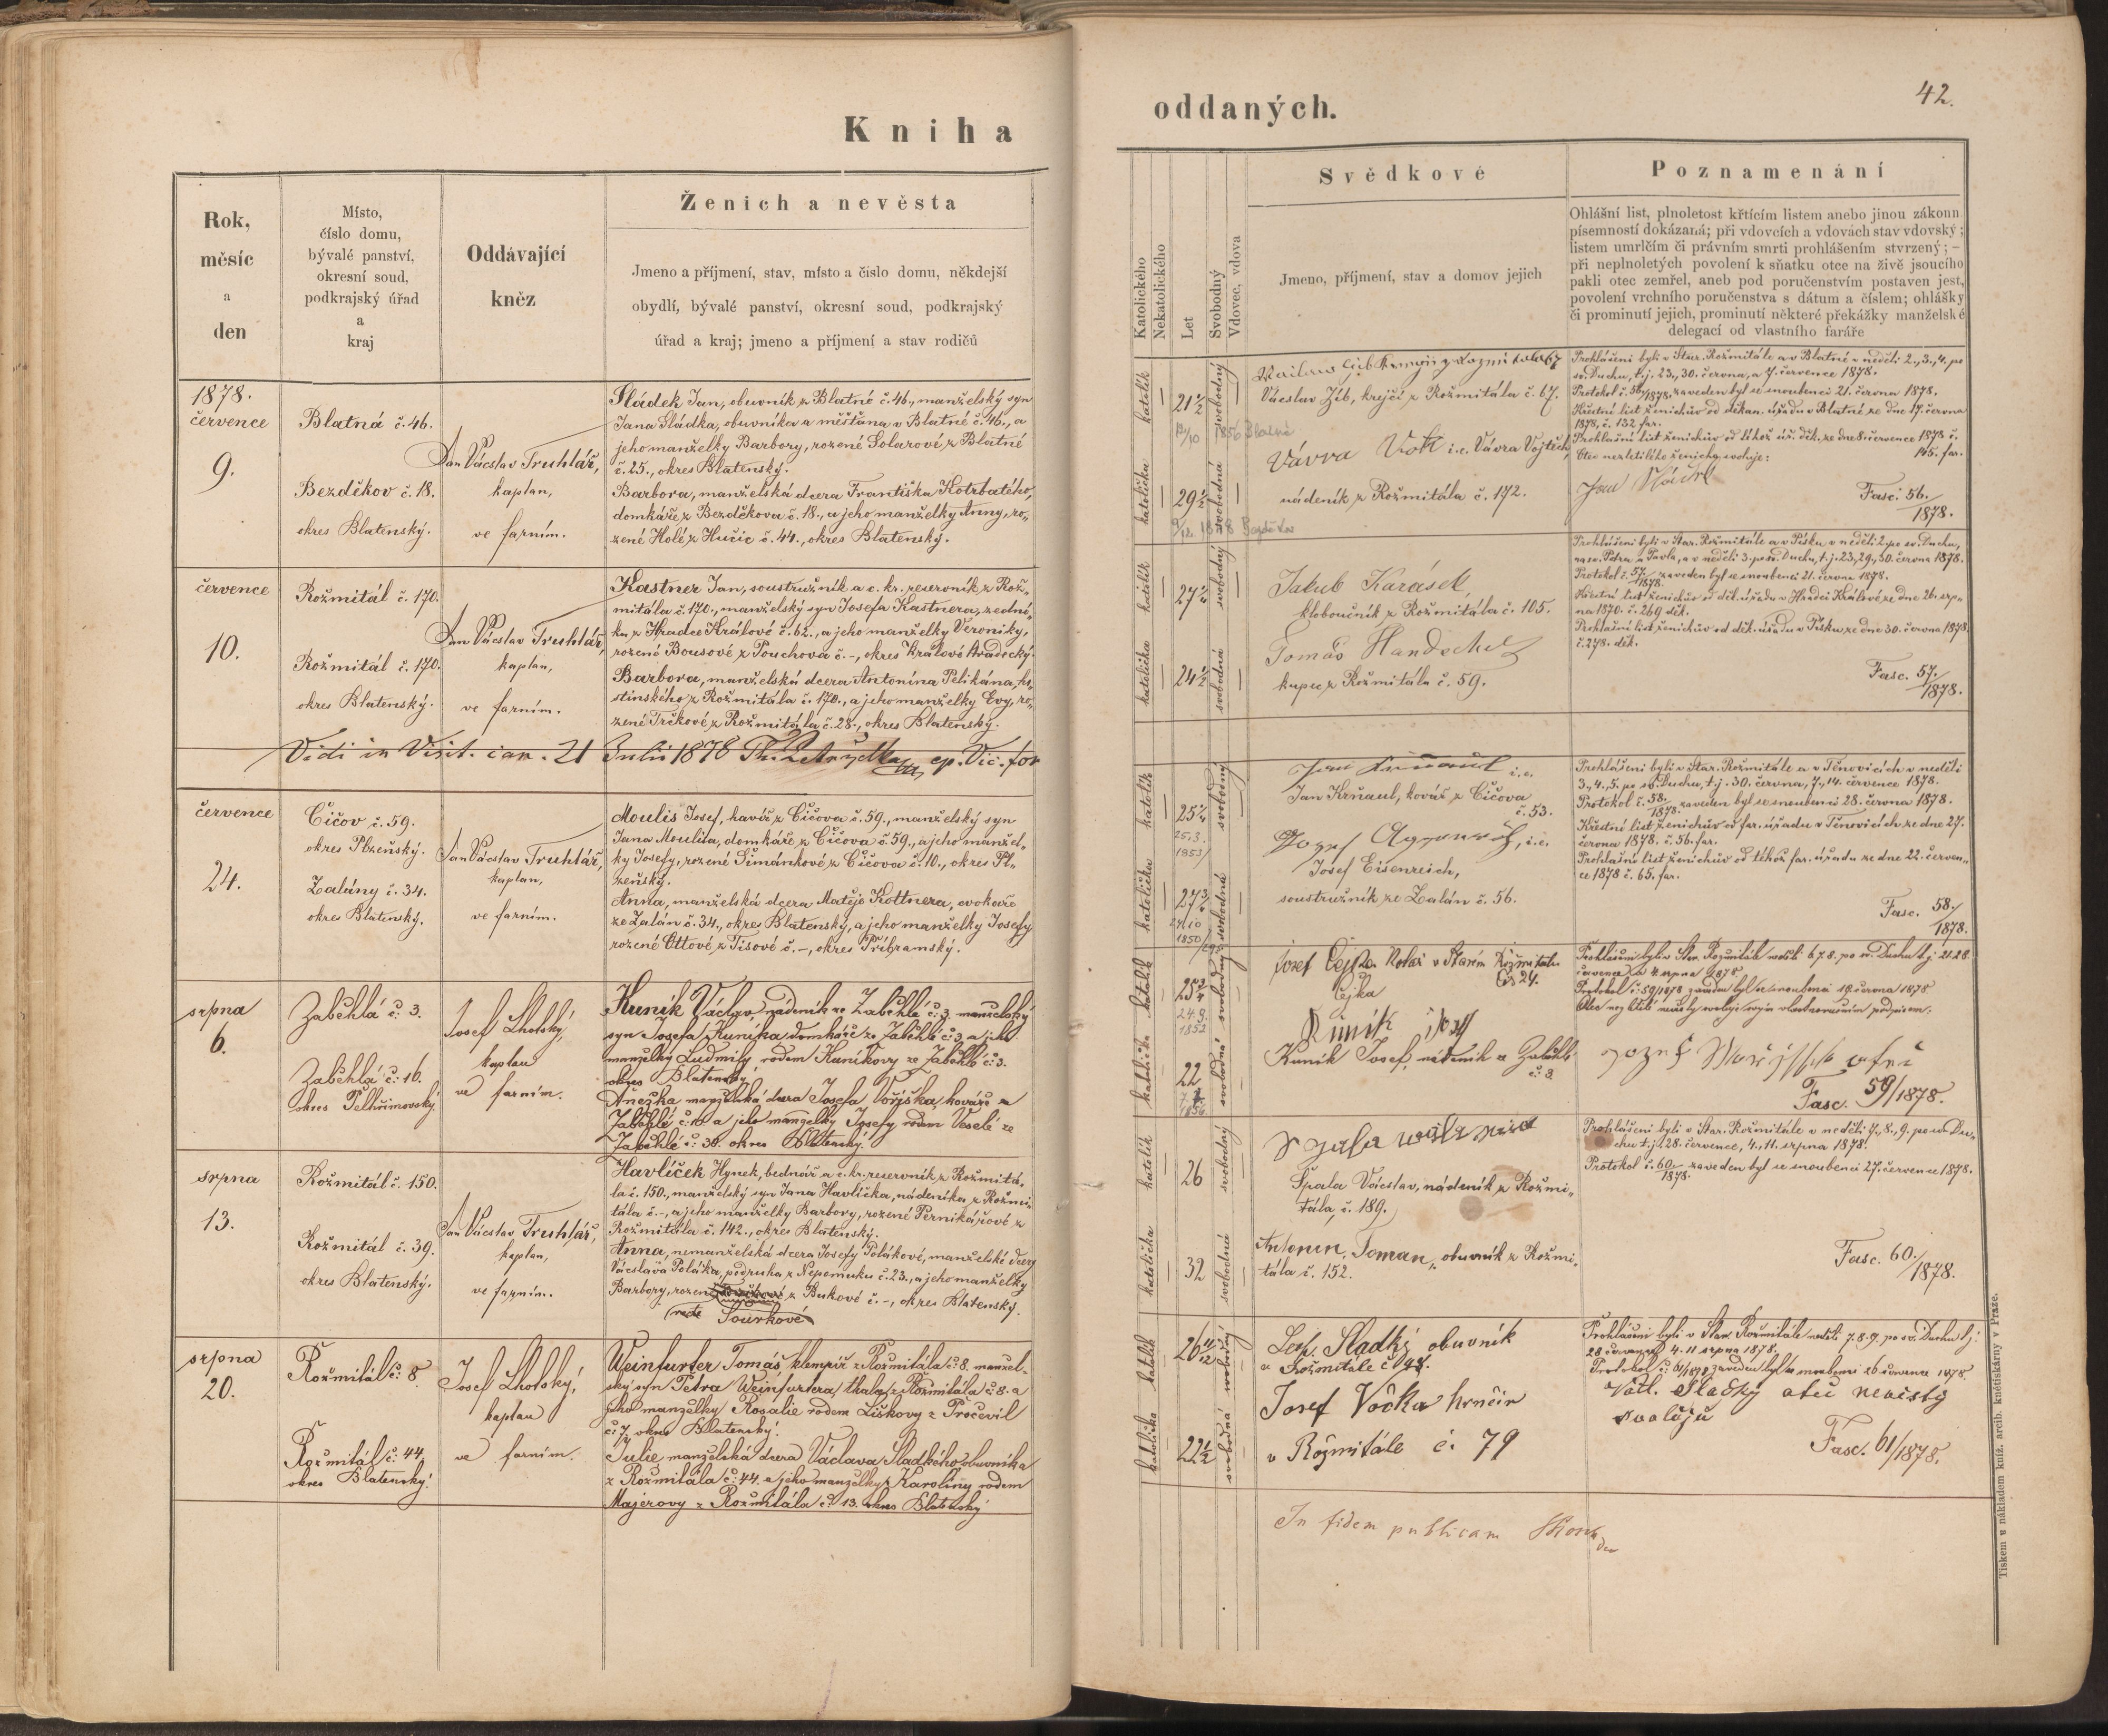 Kniha
oddaných.
42.
Rok,
měsíc
a
den
Místo,
číslo domu,
bývalé panství,
okresní soud,
podkrajský úřad
a
kraj
Oddávající
kněz
Ženich a nevěsta
Jmeno a příjmení, stav, místo a číslo domu, někdejší
obydlí, bývalé panství, okresní soud, podkrajský
úřad a kraj; jmeno a příjmení a stav rodičů
Katolického
Nekatolického
Let
Svobodný
Vdovec, vdova
Svědkové
Jmeno, příjmení, stav a domov jejich
Poznamenání
Ohlášní list, plnoletost křtícím listem anebo jinou zákonn
písemností dokázaná; při vdovcích a vdovách stav vdovský;
listem umrlčím či právním smrti prohlášením stvrzený; –
při neplnoletých povolení k sňatku otce na živě jsoucího
pakli otec zemřel, aneb pod poručenstvím postaven jest,
povolení vrchního poručenstva s dátum a číslem; ohlášky
či prominutí jejich, prominutí některé překážky manželské
delegací od vlastního faráře
1878.
července
9.
Blatná č. 46.
Bezděkov č. 18.
okres Blatenský.
Jan Václav Truhlář,
kaplan,
ve farním.
Sládek Jan, obuvník z Blatné č. 46., manželský syn
Jana Sládka, obuvníka a měšťana v Blatné č. 46., a
jeho manželky Barbory, rozené Solarové z Blatné
č. 25., okres Blatenský.
Barbora, manželská dcera Františka Kotrbatého,
domkáře z Bezděkova č. 18., a jeho manželky Anny, ro„
zené Holé z Hučic č. 44., okres Blatenský.
katolík
21 1/2
svobodný
1856 Blatná
katolička
svobodná
Václav Zíb, krejčí z Rožmitála č. 67.
Vávra Vojt i.e. Vávra Vojtěch,
nádeník z Rožmitála č. 172.
Prohlášeni byli v Star. Rožmitále a v Blatné v neděli 2., 3., 4. po
sv. Duchu, t.j. 23., 30. června, a 7. července 1878.
Protokol č. 56/1878. zaveden byl se snoubenci 21. června 1878.
Křestní list ženichův od děkan. úřadu v Blatné ze dne 17. června
1878, č. 132 far.
Otec nezletilého ženicha svoluje:
Jan Sládek
Fasc. 56./1878.
července
10.
Rožmitál č. 170.
Rožmitál č. 170.
okres Blatenský.
Jan Václav Truhlář,
kaplan,
ve farním.
Kastner Jan, soustružník a c. kr. reservník z Rož„
mitála č. 170., manželský syn Josefa Kastnera, zední„
ka z Hradce Králové č. 62., a jeho manželky Veroniky,
rozené Bousové z Pouchova č. –, okres Králové Hradecký.
Barbora, manželská dcera Antonína Pelikána, ho„
stinského z Rožmitála č. 170., a jeho manželky Evy, ro„
zené Trčkové z Rožmitála č. 28., okres Blatenský.
katolík
svobodný
katolička
svobodná
Jakub Karásek,
kloboučník z Rožmitála č. 105.
Tomáš Handschel
kupec z Rožmitála č. 59.
Prohlášeni byli v Star. Rožmitále a v Písku v neděli 2. po sv. Duchu,
na sv. Petra a Pavla, a v neděli 3. po sv. Duchu, t.j. 23., 29., 30. června 1878.
Protokol č. 57./1878. zaveden byl se snoubenci 21. června 1878.
Křestní list ženichův od děk. úřadu v Hradci Králové ze dne 26. srp„
na 1870. č. 269 děk.
Prohlašní list ženichův od děk. úřadu v Písku ze dne 30. června 1878.
č. 278. děk.
Fasc. 57./1878.
Vidi in Visit. can. 21 Julii 1878
července
24.
Číčov č. 59.
okres Plzeňský.
Zalány č. 34.
okres Blatenský.
Jan Václav Truhlář,
kaplan,
ve farním.
Moulis Josef, havíř z Číčova č. 59., manželský syn
Jana Moulisa, domkáře z Číčova č. 59., a jeho manžel„
ky Josefy, rozené Šimánkové z Číčova č. 10., okres Pl„
zeňský.
Anna, manželská dcera Matěje Kottnera, cvokaře
ze Zalán č. 34., okres Blatenský, a jeho manželky Josefy
rozené Ottové z Tisové č. –, okres Příbramský.
katolík
svobodný
25.3.
1853
katolička
27 3/4
svobodná
24/10
1850
Jan Krňaul, kovář z Číčova
č. 53.
Josef Eisenreich,
soustružník ze Zalán č. 56.
Prohlášeni byli v Star. Rožmitále a v Těnovicích v neděli
3., 4., 5. po sv. Duchu, t.j. 30. června, 7., 14. července 1878.
Protokol č. 58./1878. zaveden byl se snoubenci 28. června 1878.
Křestní list ženichův od far. úřadu v Těnovicích ze dne 27.
června 1878. č. 56. far.
Prohlašní list ženichův od téhož far. úřadu ze dne 22. červen„
ce 1878 č. 65. far.
Fasc. 58./1878.
srpna
6.
Zaběhlá č. 3.
Zaběhlá č. 16.
okres
Josef Lhotský,
kaplan
ve farním.
Kuník Václav, nádeník ze Zaběhlé č. 3 manželský
syn Josefa Kuníka domkáře ze Zaběhlé č. 3 a jeho
manželky Ludmily rodem Kuníkovy ze Zaběhlé č. 3.
okres Blatenský.
Anežka manželská dcera Josefa Voříška, kováře ze
Zaběhlé č. 16 a jeho manželky Josefy rodem Veselé ze
Zaběhlé č. 30. okres Blatenský.
katolík
25 3/4
24.9.
1852
svobodný
katolička
22
svobodná
1856
Josef Čejka Kolář v Starém Rožmitále
Čís 24.
Čejka
Kuník Josef
Kuník Josef, nádeník ze Zaběhlé
č. 3.
Protokol č. 59/1878 zaveden byl se snoubenci
Fasc. 59/1878.
srpna
13.
Rožmitál č. 150.
Rožmitál č. 39.
okres Blatenský.
Jan Václav Truhlář,
kaplan,
ve farním.
Havlíček Hynek, bednář a c. kr. reservník z Rožmitá„
la č. 150., manželský syn Jana Havlíčka, nádeníka z Rožmi„
tála č. –, a jeho manželky Barbory, rozené Pernikářové z
Rožmitála č. 142., okres Blatenský.
Anna, nemanželská dcera Josefy Polákové, manželské dcery
Václava Poláka, podruha z Nepomuku č. 23., a jeho manželky
Barbory, rozené z Bukové č. –, okres Blatenský.
recte Sourkové
katolík
26
svobodný
katolička
32
svobodná
Špala Václav, nádeník z Rožmi„
tála, č. 189.
Antonin Toman, obuvník z Rožmi„
tála č. 152.
Prohlášeni byli v Star. Rožmitále v neděli 7., 8., 9. po sv. Du„
chu t.j. 28. července, 4., 11. srpna 1878.
Protokol č. 60./1878. zaveden byl se snoubenci 27. července 1878.
Fasc. 60./1878.
srpna
20.
Rožmitál č. 8
Rožmitál č. 44.
okres Blatenský.
Josef Lhotský,
kaplan
ve farním.
Weinfurter Tomáš klempíř z Rožmitála č. 8. manžel„
ský syn Petra Weinfurtera, tkalce z Rožmitála č. 8. a
jeho manželky Rosalie rodem Liškovy z Pročevil
č. 7, okres Blatenský.
Julie manželská dcera Václava Sladkého obuvníka
z Rožmitála č. 44. a jeho manželky Karoliny rodem
Majerovy z Rožmitála č. 13. okres Blatenský
katolík
26 11/12
svobodný
katolička
22 1/2
svobodná
Sladký obuvník
Josef Vočka hrnčíř
v Rožmitále č. 79
Prohlášeni byli v Star. Rožmitále neděli 7. 8. 9. po sv. Duchu t.j.
28 července 4. 11 srpna 1878.
Sladký otec nevěsty
svoluje
Fasc. 61/1878.
In fidem publicam
Tiskem a nákladem kníž. arcib. knětiskárny v Praze.